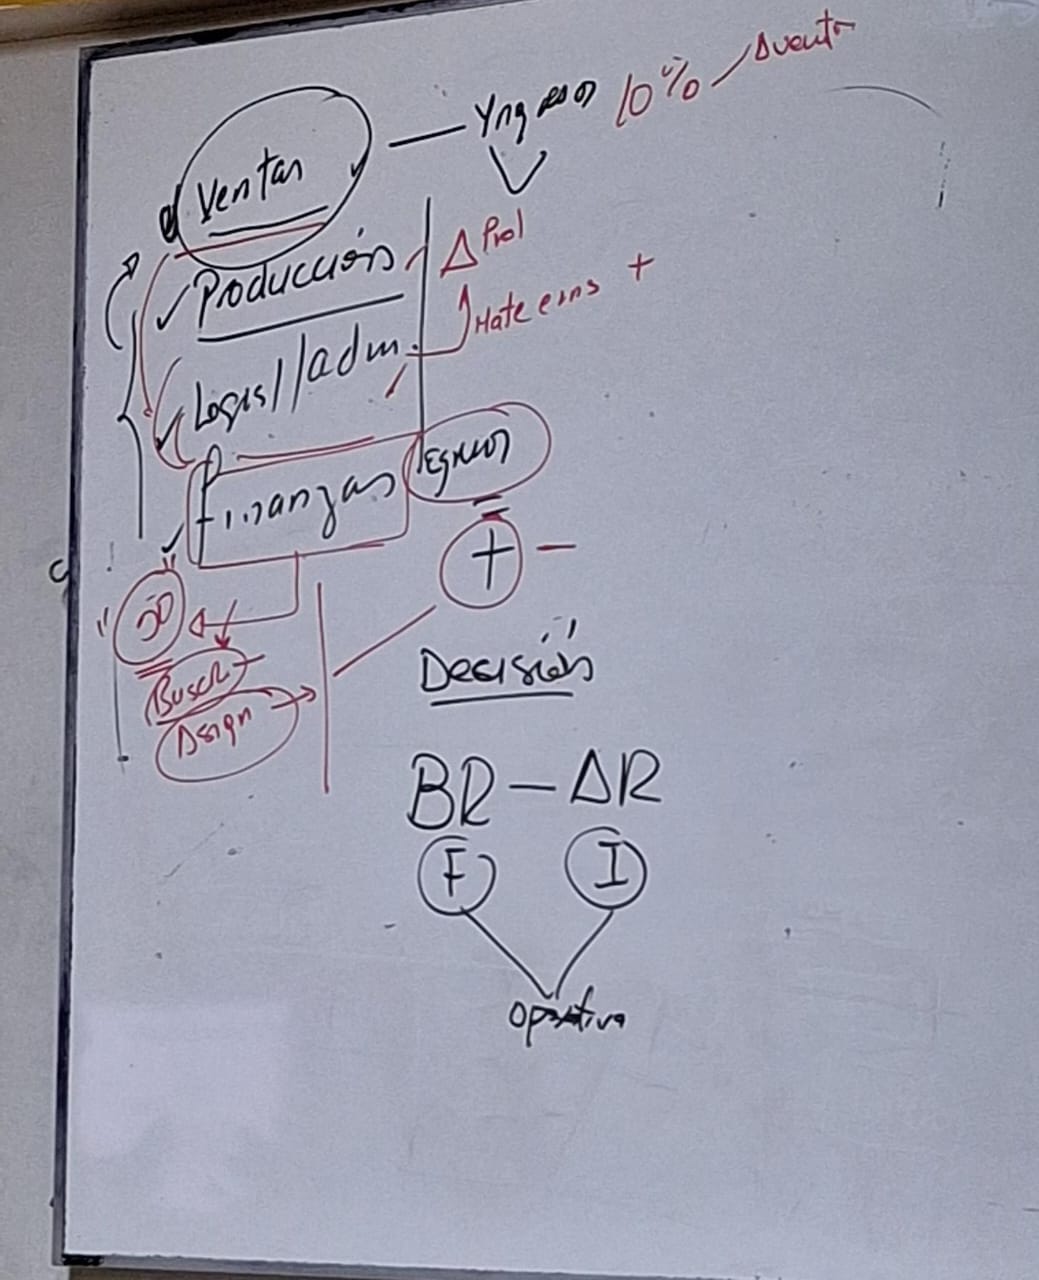 Ventas — Yngresos 10% Δventa
Producción Δ Prod
Logis//adm. Mate +
Finanzas Egresos
+ -
50
Busca
Asign
Decisión
BR - ΔR
F I
Operativa